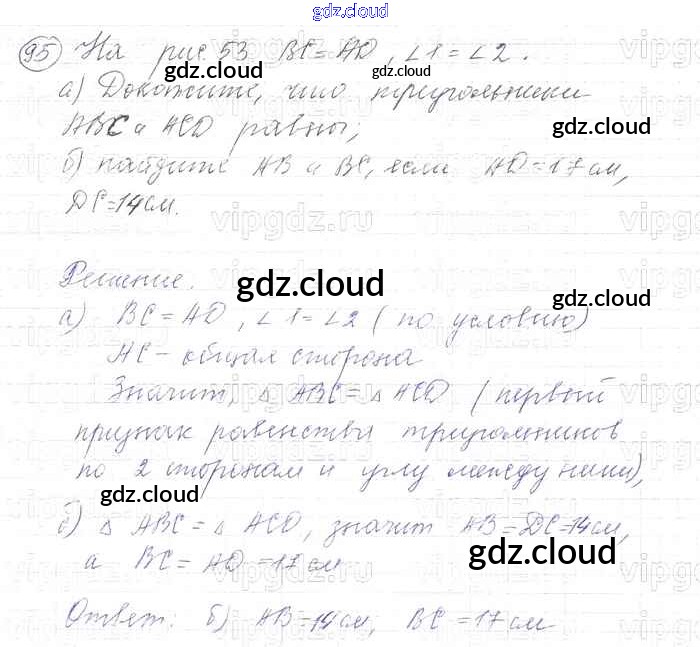 gdz.cloud
95 На рис. 53 BC=AD, ∠1=∠2.
gdz.cloud gdz.cloud
а) Докажите, что треугольники
ABC и ACD равны;
gdz.cloud
б) найдите AB и BC, если AD=17см,
DC=14см.
vipgdz.ru
Решение.
gdz.cloud
gdz.cloud
а) BC=AD, ∠1=∠2 (по условию)
AC - общая сторона
Значит, △ ABC=△ ACD (первый
признак равенства треугольников
по 2 сторонам и углу между ними),
gdz.cloud
б) △ ABC=△ ACD, значит AB=DC=14см,
а BC=AD=17см
gdz.cloud
Ответ: б) AB=14см, BC=17см